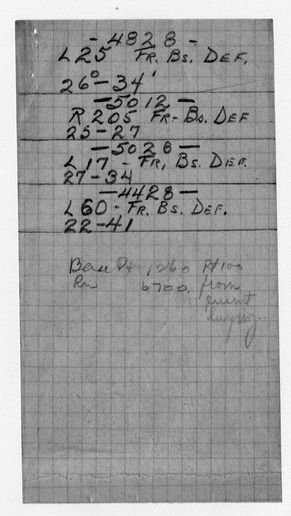 - 4828 -
L 25 Fr. Bs. Def.
26°-34'
- 5012 -
R 205 Fr- Bs. Def
25-27
- 5028 -
L 17 - Fr, Bs. Def.
27-34
- 4428 -
L 60 - Fr. Bs. Def.
22-41
Base Pt 1260 Rt 100
Rn 6700. from